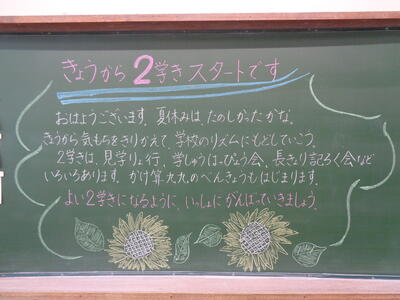 きょうから2学きスタートです
おはようございます。夏休みは、たのしかったかな。
きょうから気もちをきりかえて、学校のリズムにもどしていこう。
2学きは、見学りょ行、学しゅうはっぴょう会、長きょり記ろく会など
いろいろあります。かけ算九九のべんきょうもはじまります。
よい2学きになるように、いっしょにがんばっていきましょう。